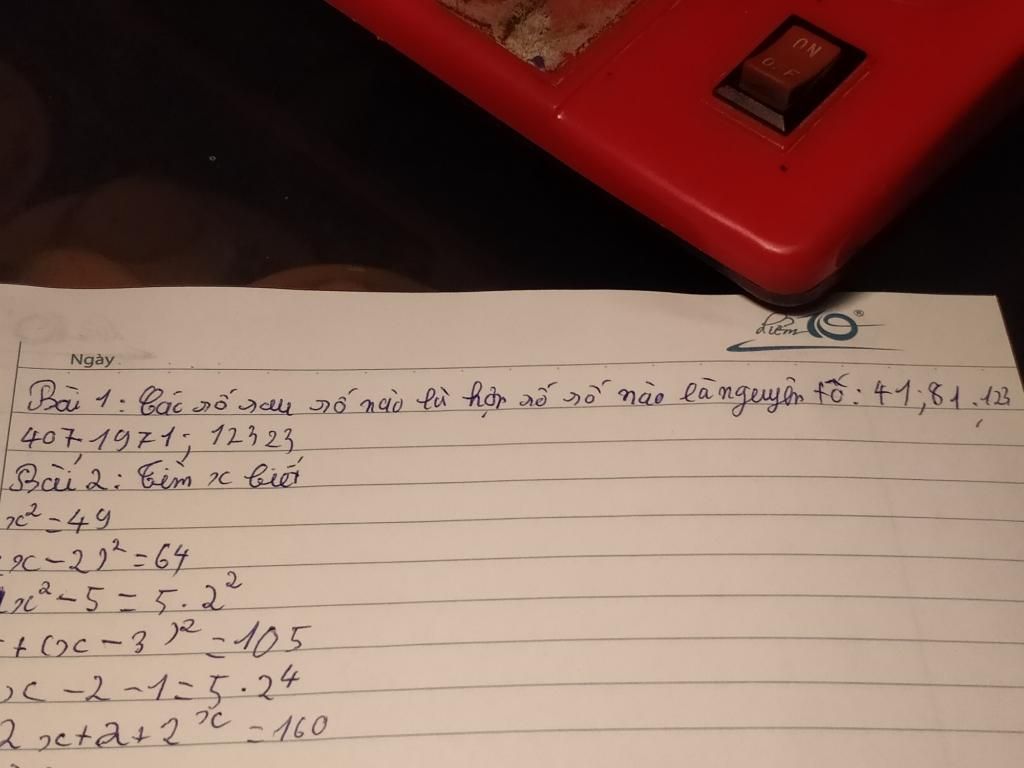 ON
OFF
điểm 10 ®
Ngày
Bài 1: Các số sau số nào là hợp số số nào là nguyên tố: 41; 81. 123
407, 1971; 12323
Bài 2: Tìm x biết
x² = 49
x - 2)² = 64
x² - 5 = 5 . 2²
+ (x - 3)² = 105
x - 2 - 1 = 5 . 2⁴
2 x + 2 + 2ˣ = 160